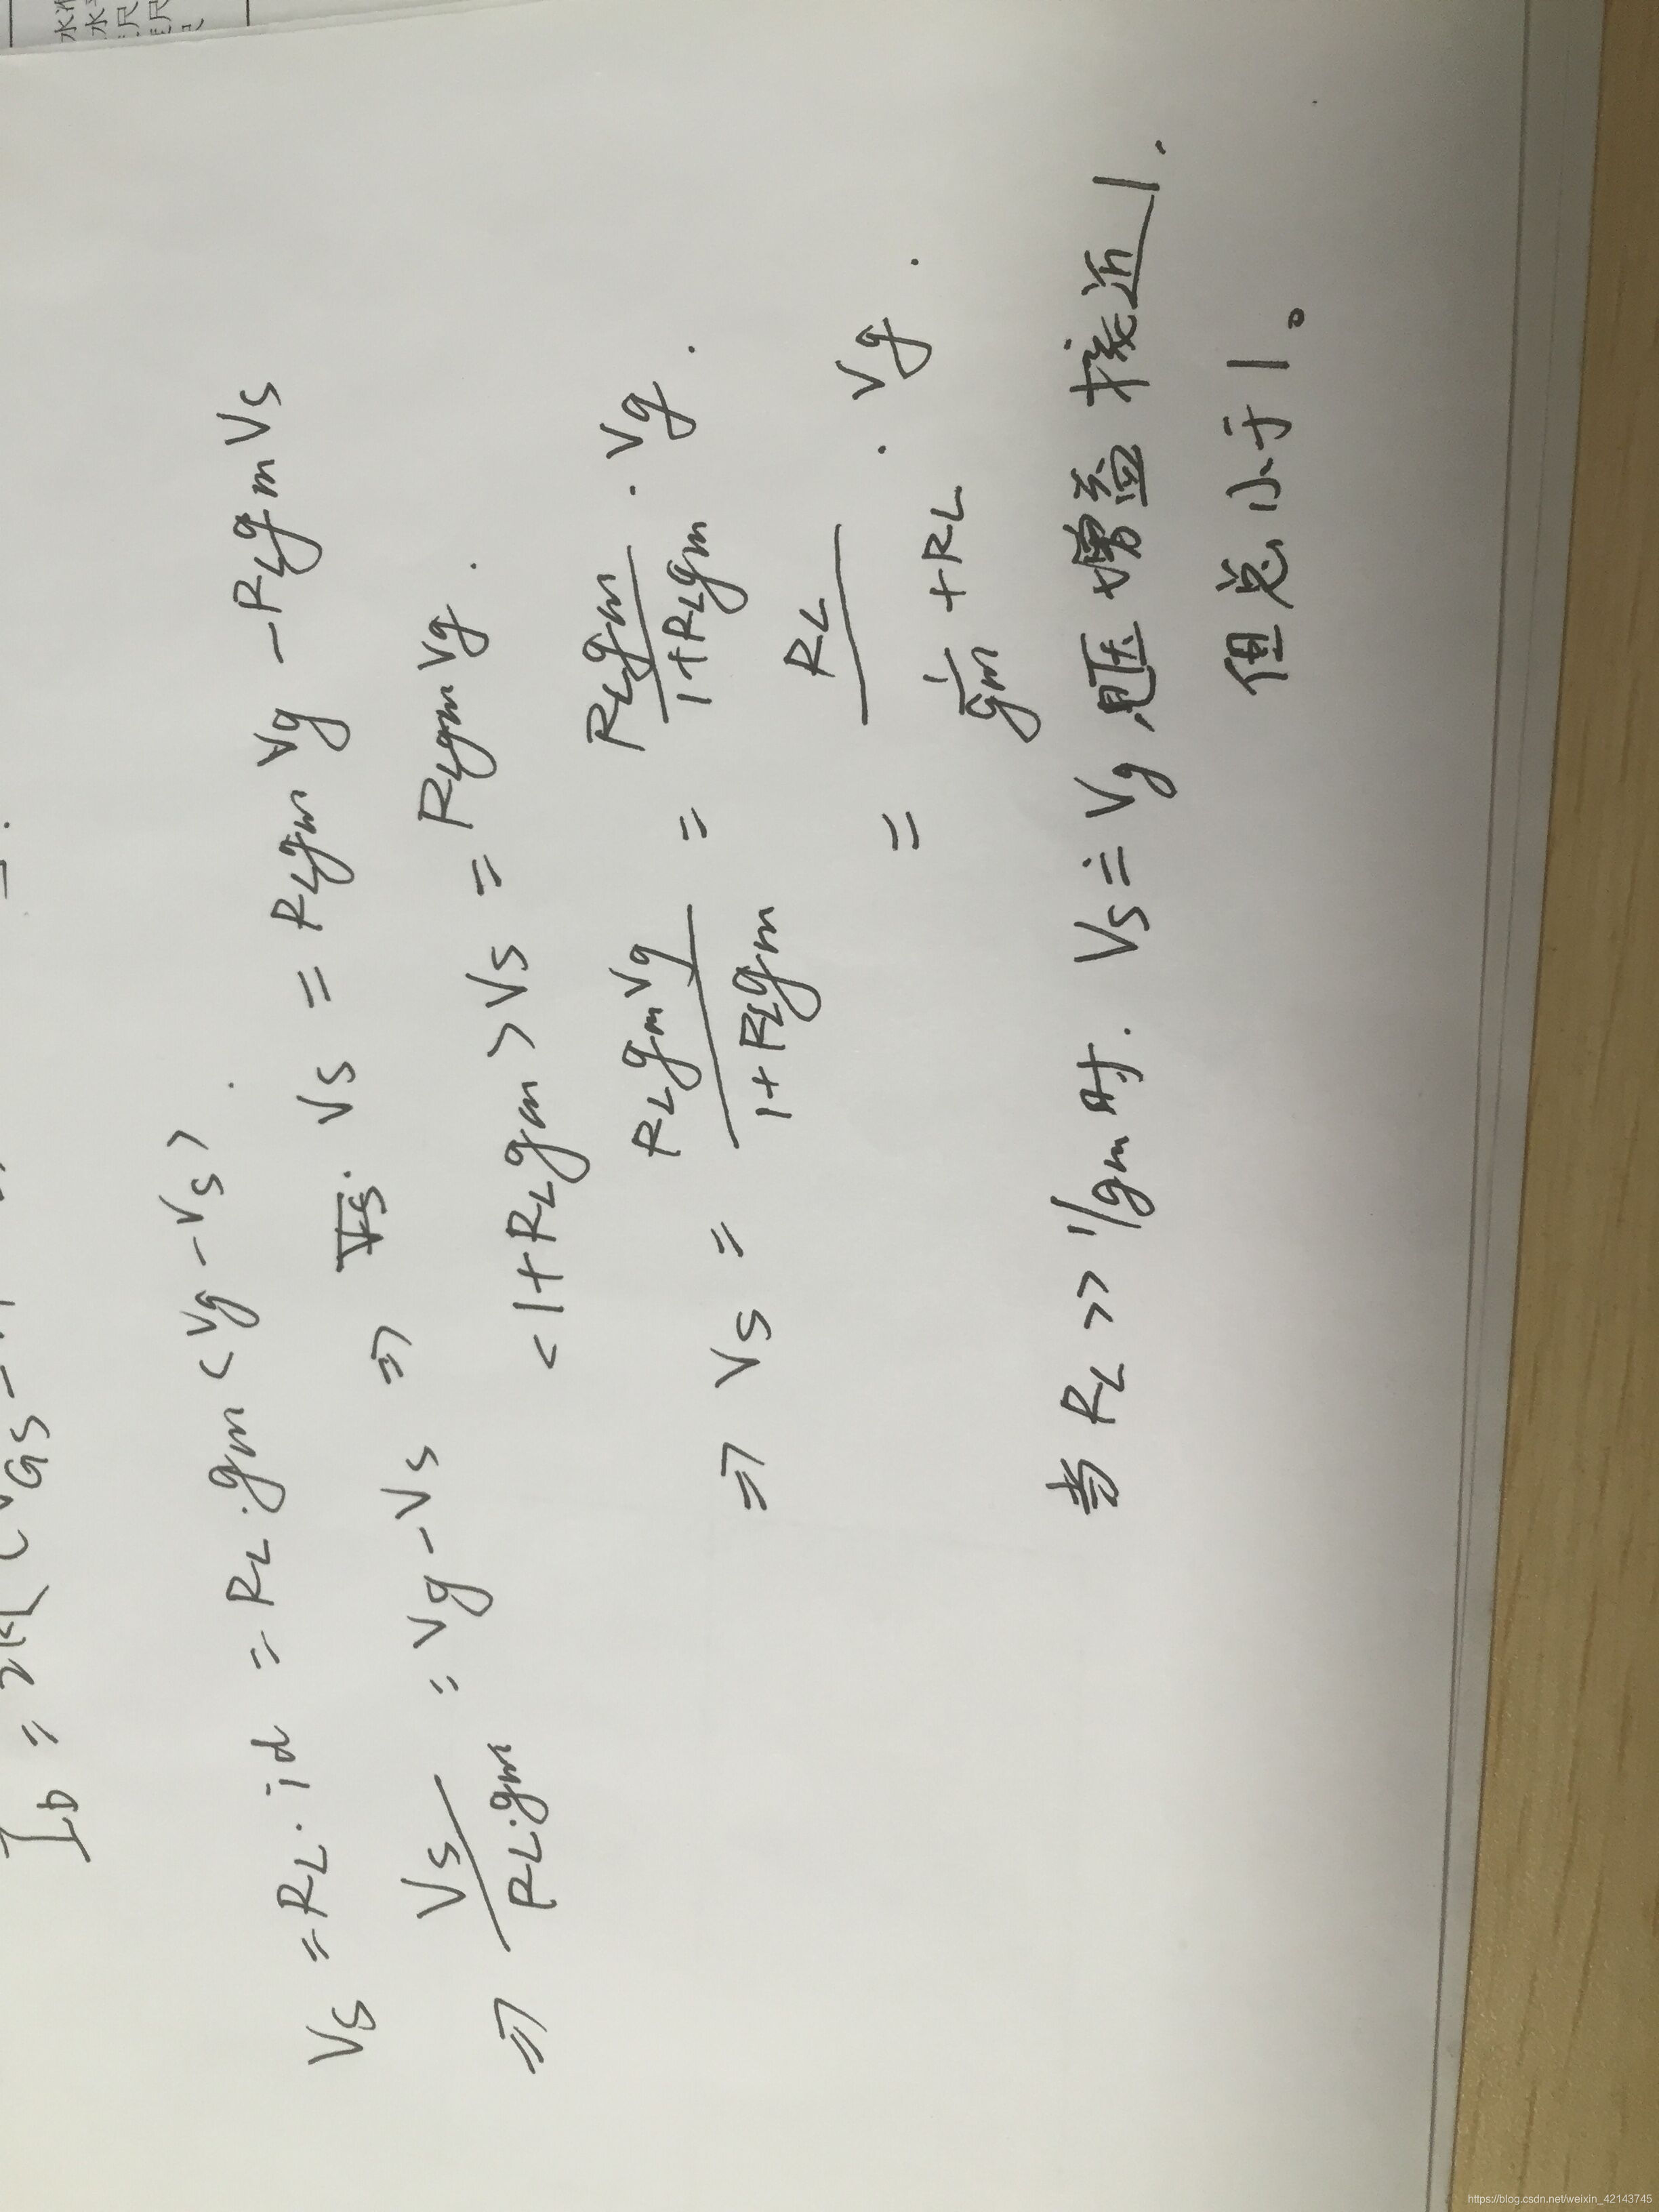 水
水
尺
尺
I_D = 2K(V_GS -
V_S = R_L·i_d = R_L·g_m(V_g - V_S)
⇒ V_S/(R_L·g_m) = V_g - V_S ⇒ V_S = R_L g_m V_g - R_L g_m V_S
(1 + R_L g_m)V_S = R_L g_m V_g.
⇒ V_S = (R_L g_m V_g)/(1 + R_L g_m) = (R_L g_m)/(1 + R_L g_m) · V_g.
= R_L/(1/g_m + R_L) · V_g.
当 R_L >> 1/g_m 时. V_S ≒ V_g, 电压增益接近1.
但总小于1。
https://blog.csdn.net/weixin_42143745